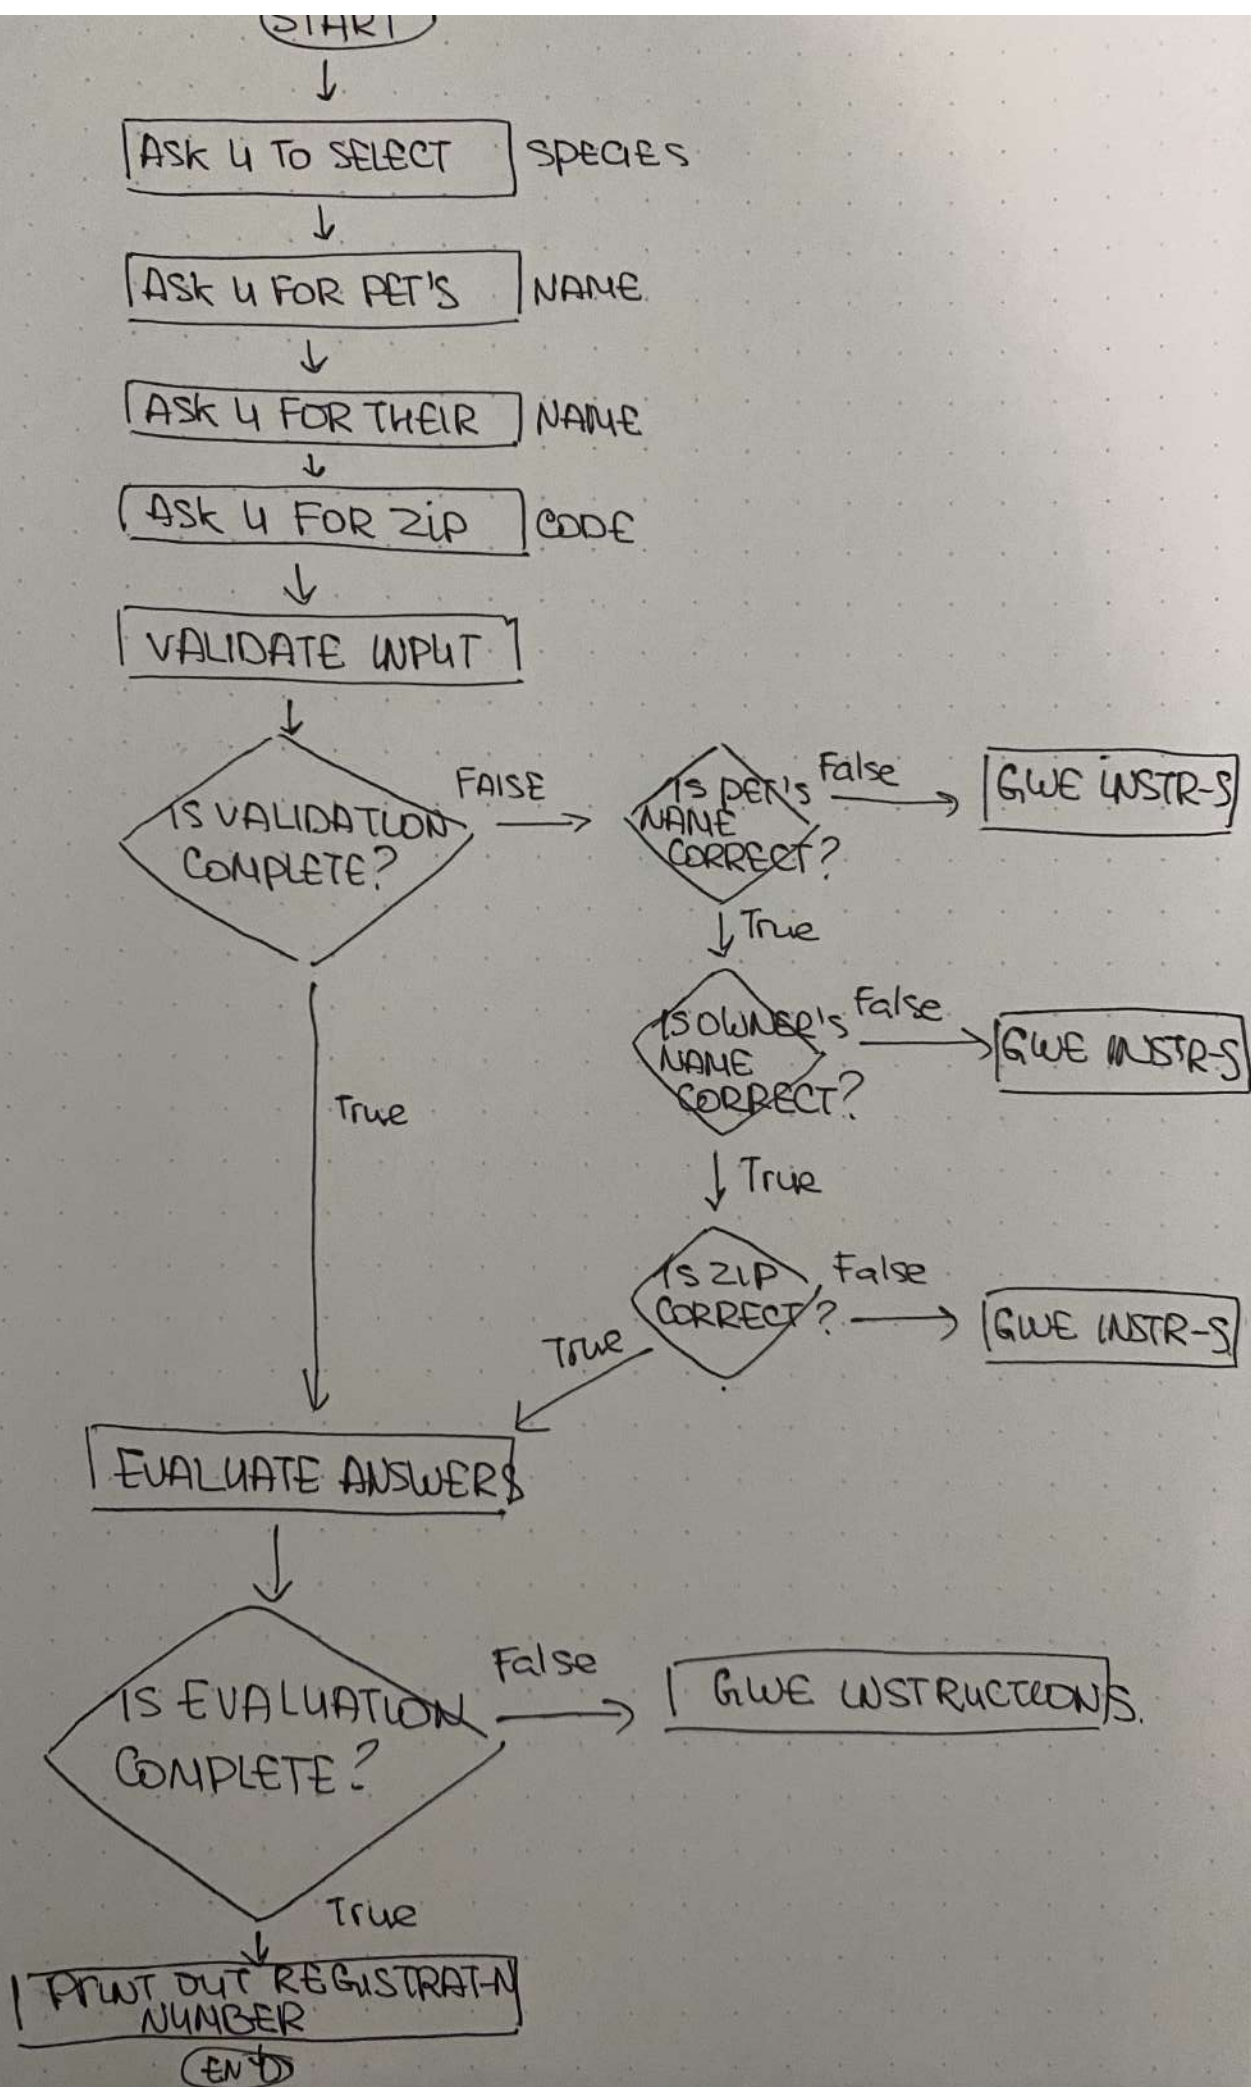 START
ASK U TO SELECT SPECIES
ASK U FOR PET'S NAME
ASK U FOR THEIR NAME
ASK U FOR ZIP CODE
VALIDATE INPUT
IS VALIDATION
COMPLETE?
FALSE
IS PET'S
NAME
CORRECT?
False
GIVE INSTR-S
True
IS OWNER'S
NAME
CORRECT?
False
GIVE INSTR-S
True
True
IS ZIP
CORRECT?
False
GIVE INSTR-S
True
EVALUATE ANSWERS
IS EVALUATION
COMPLETE?
False
GIVE INSTRUCTIONS.
True
PRINT OUT REGISTRAT-N
NUMBER
END